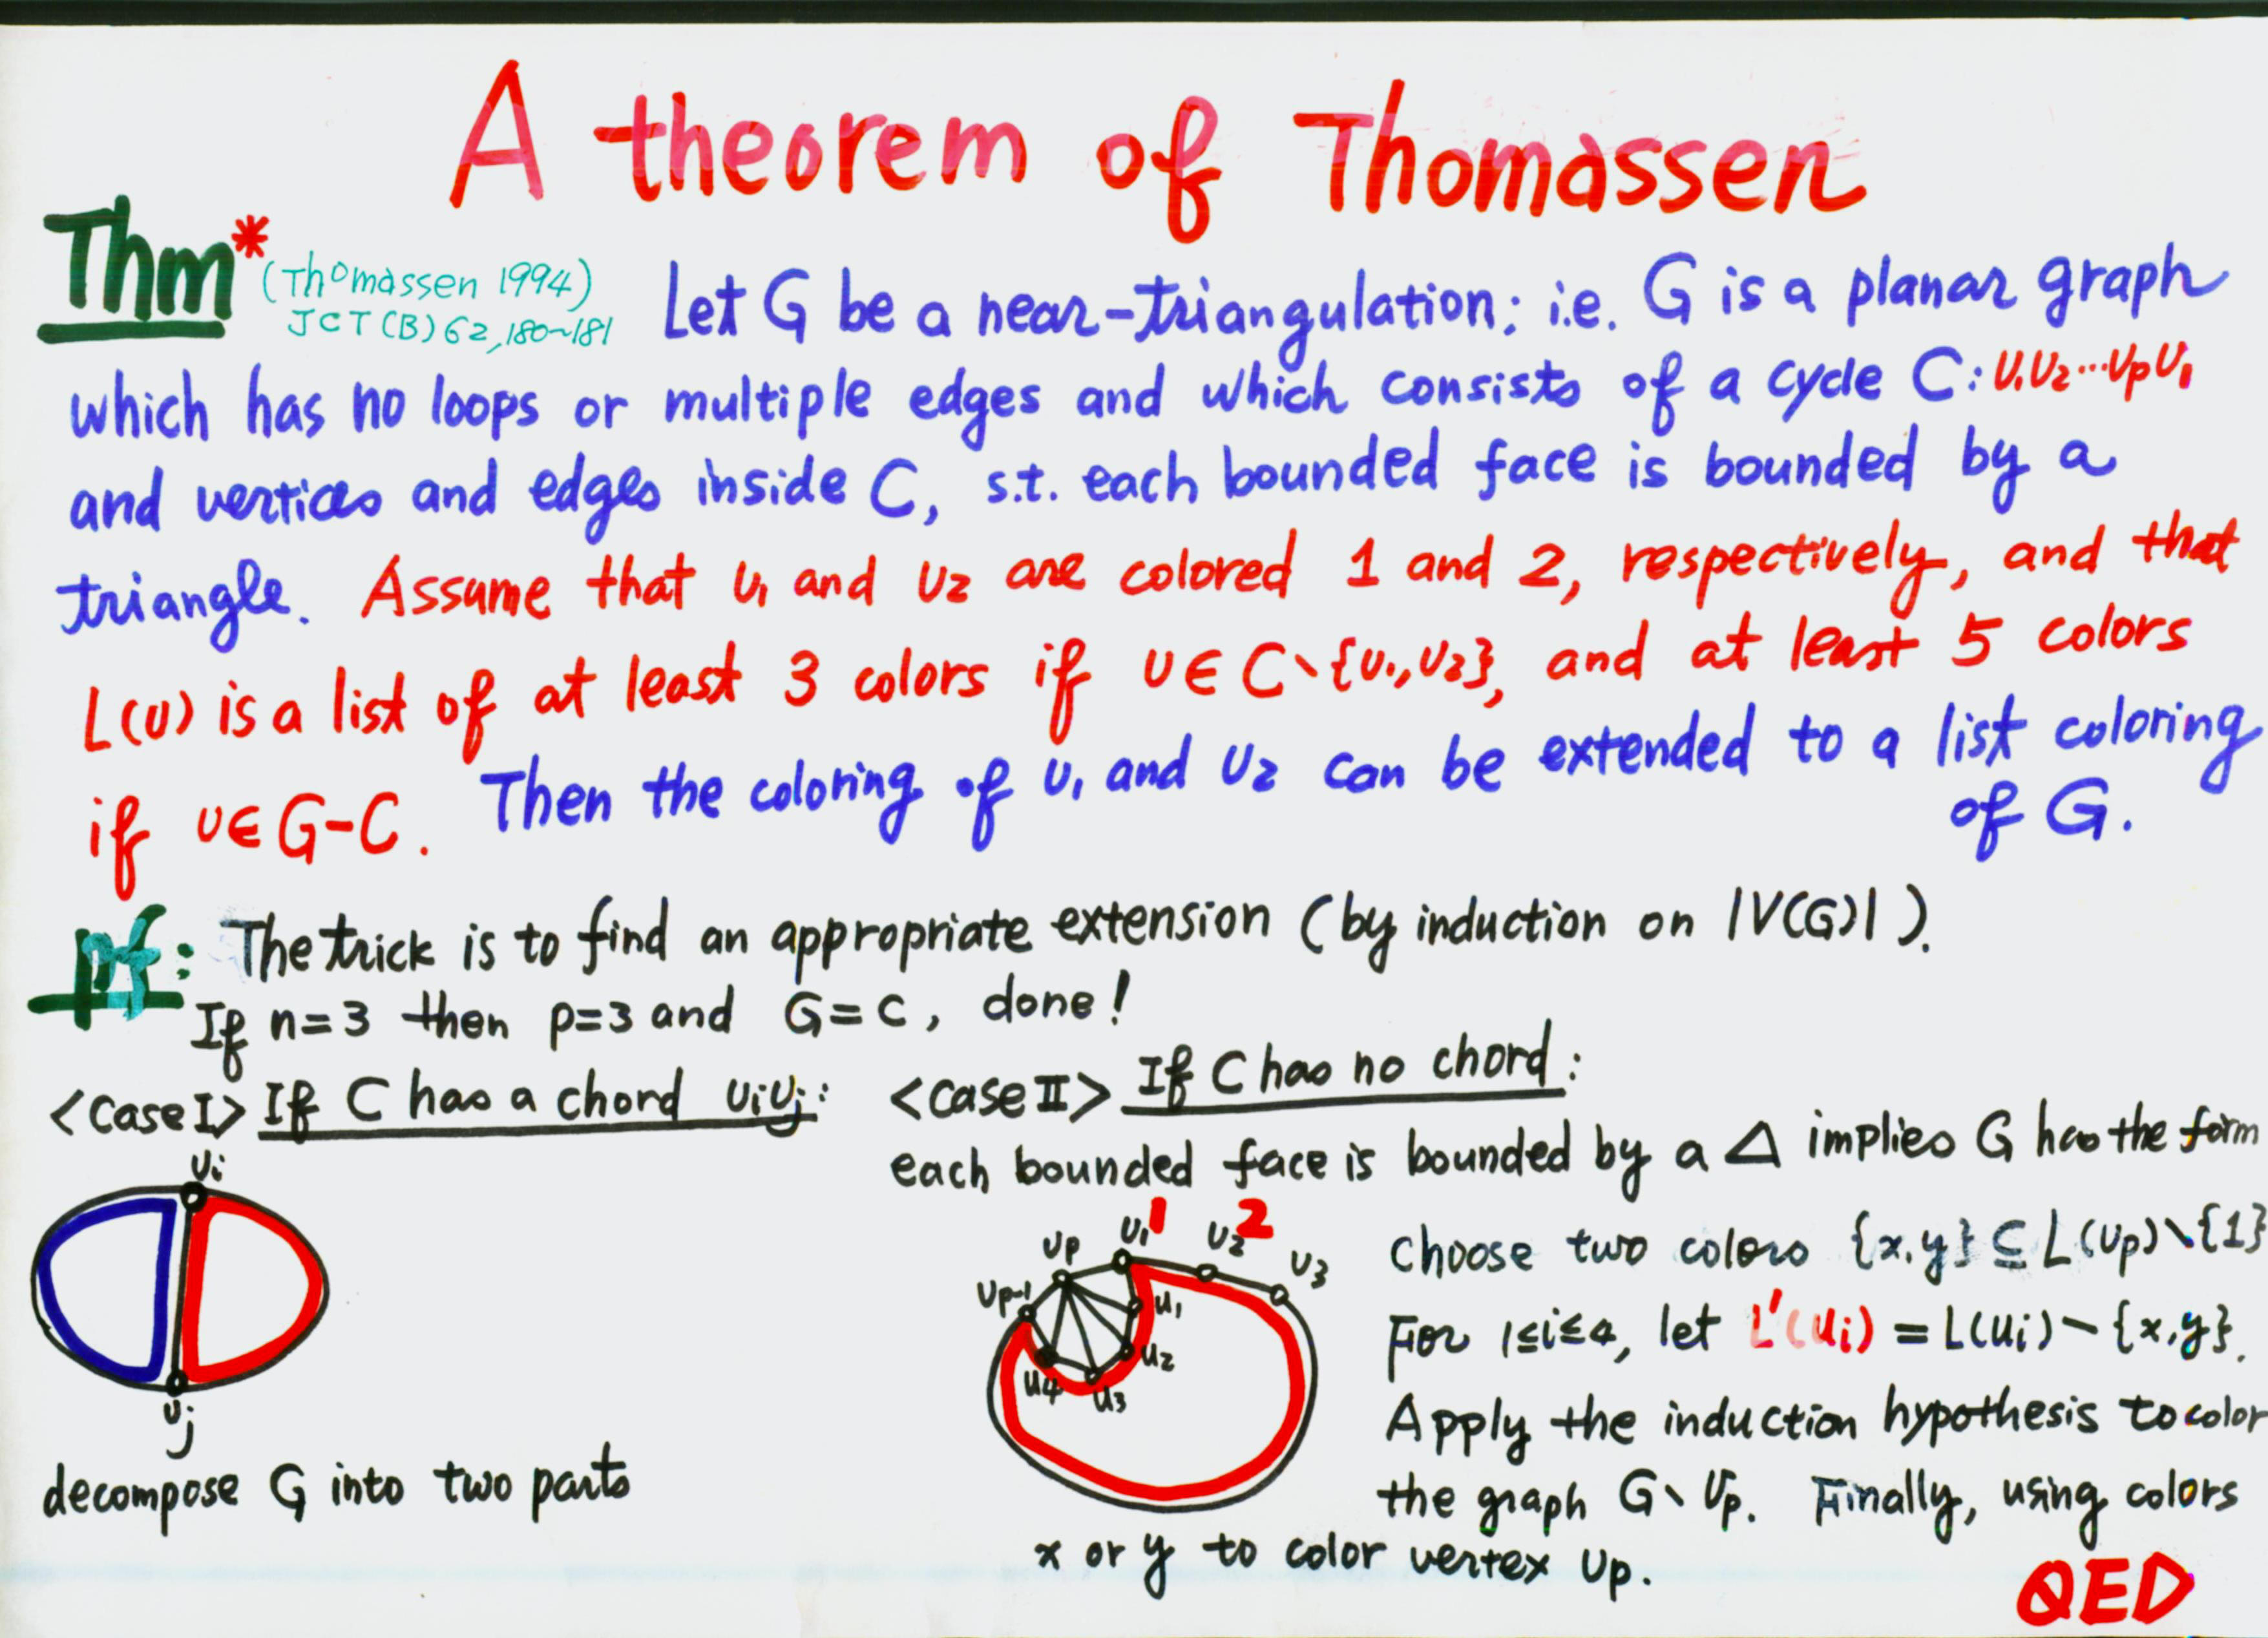 A theorem of Thomassen
Thm* (Thomassen 1994)
JCT(B) 62, 180~181
Let G be a near-triangulation; i.e. G is a planar graph
which has no loops or multiple edges and which consists of a cycle C: v₁v₂…vₚv₁
and vertices and edges inside C, s.t. each bounded face is bounded by a
triangle. Assume that v₁ and v₂ are colored 1 and 2, respectively, and that
L(v) is a list of at least 3 colors if v∈C∖{v₁,v₂}, and at least 5 colors
if v∈G−C. Then the coloring of v₁ and v₂ can be extended to a list coloring
of G.
pf: The trick is to find an appropriate extension (by induction on |V(G)|).
If n=3 then p=3 and G=C, done!
<Case I> If C has a chord vᵢvⱼ:
vᵢ
vⱼ
decompose G into two parts
<case II> If C has no chord:
each bounded face is bounded by a △ implies G has the form
vₚ₋₁ vₚ v₁ 1 v₂ 2 v₃
u₁
u₂
u₄ u₃
choose two colors {x,y} ⊆ L(vₚ)∖{1}
For 1≤i≤4, let L'(uᵢ) = L(uᵢ) − {x,y}.
Apply the induction hypothesis to color
the graph G∖vₚ. Finally, using colors
x or y to color vertex vₚ.
QED